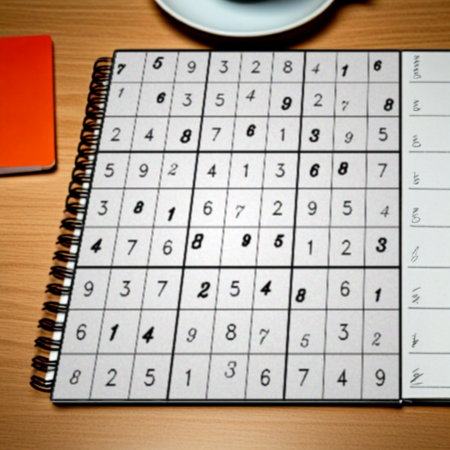 7 5 9 3 2 8 4 1 6
1 6 3 5 4 9 2 7 8
2 4 8 7 6 1 3 9 5
5 9 2 4 1 3 6 8 7
3 8 1 6 7 2 9 5 4
4 7 6 8 9 5 1 2 3
9 3 7 2 5 4 8 6 1
6 1 4 9 8 7 5 3 2
8 2 5 1 3 6 7 4 9